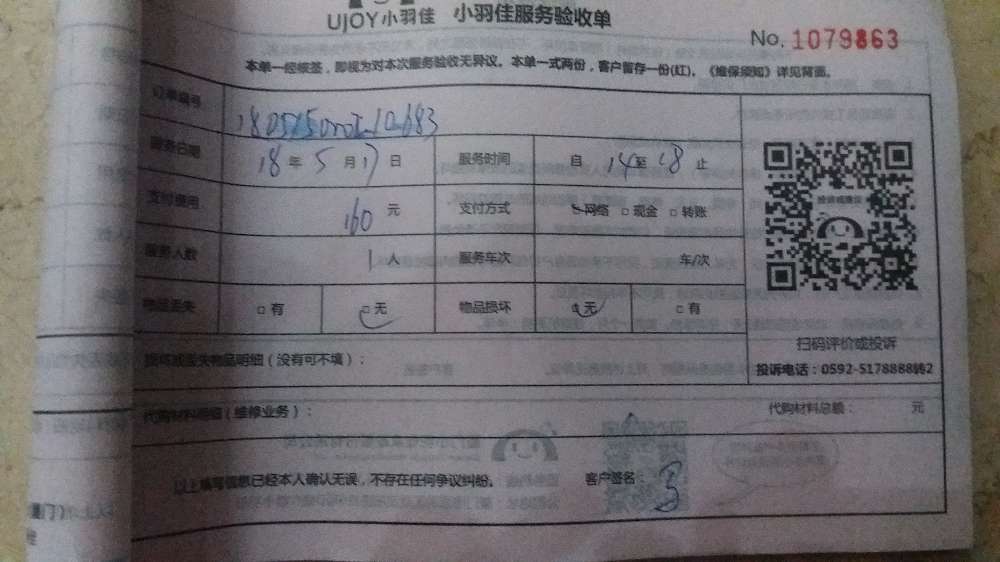 UJOY小羽佳 小羽佳服务验收单
No. 1079863
本单一经核签，即视为对本次服务验收无异议。本单一式两份，客户留存一份(红)。《维保须知》详见背面。
订单编号
服务日期 18 年 5 月 17 日 服务时间 自 14 至 18 止
支付费用 160 元 支付方式 □网络 □现金 □转账
服务人数 1 人 服务车次 车/次
物品丢失 □有 □无 物品损坏 □无 □有
投诉或建议
扫码评价或投诉
投诉电话：0592-5178888转2
损坏或丢失物品明细（没有可不填）：
代购材料明细（维修业务）： 代购材料总额： 元
以上填写信息已经本人确认无误，不存在任何争议纠纷。 客户签名：